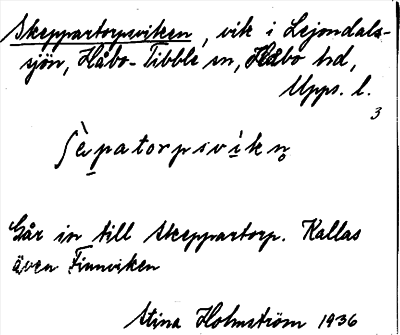 Skeppartorpsviken, vik i Lejondals-
sjön, Håbo-Tibble sn, Håbo hd,
Upps. l.
3
ʃèpatorpsvikn̥
Går in till Skeppartorp. Kallas
även Finnviken
Stina Holmström 1936